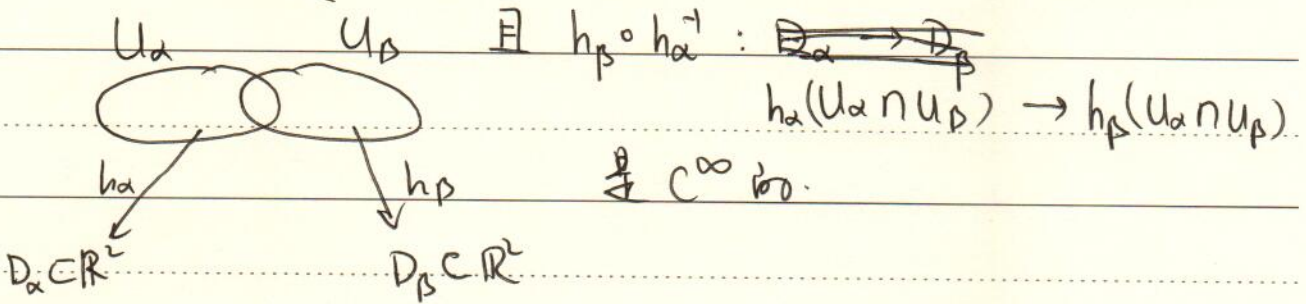 U_α U_β 且 h_β∘h_α⁻¹ : D_α → D_β
h_α(U_α∩U_β) → h_β(U_α∩U_β)
h_α h_β 是 C^∞ 的.
D_α⊂ℝ² D_β⊂ℝ²